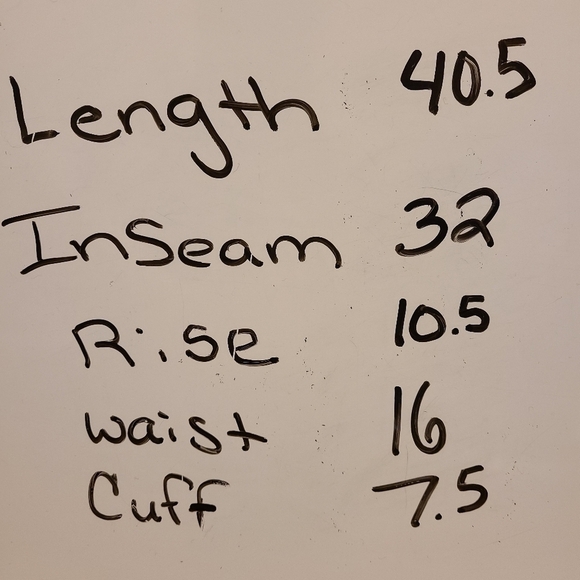 Length 40.5
InSeam 32
Rise 10.5
waist 16
Cuff 7.5